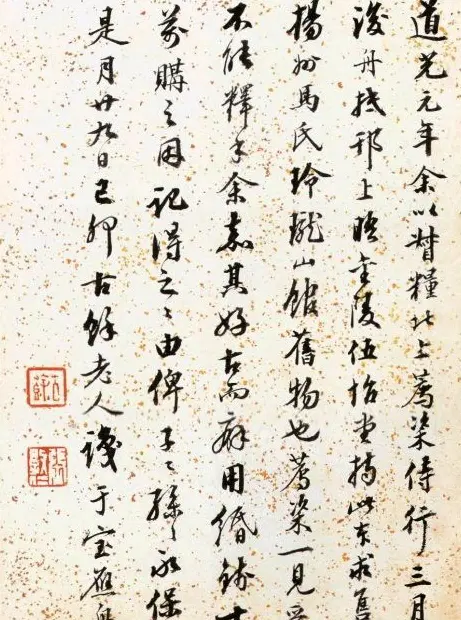 道光元年余以督糧北上薦粢侍行三月
浚舟抵邗上晤金陵伍詒堂持此本求售
揚州馬氏玲瓏山館舊物也薦粢一見
不能釋手余嘉其好古而癖用緡錢十
萬購之因記得之〻由俾子〻孫〻永保
是月廿九日己卯古餘老人識于宝應
古餘